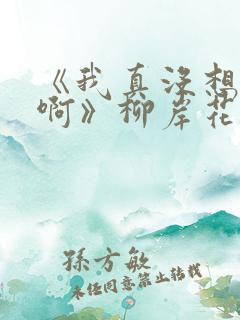 《我真没想
啊》柳岸花
孫方敏
未经同意禁止转载